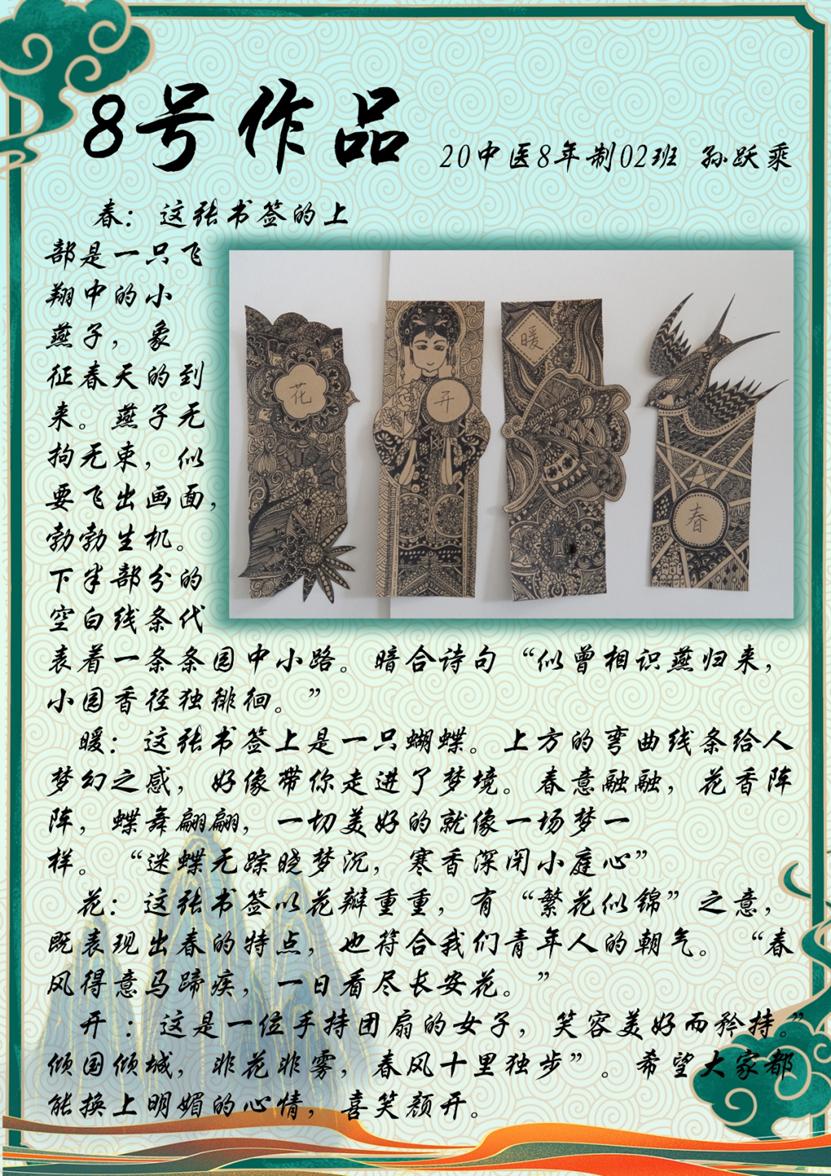 8号作品
20中医8年制02班 孙跃乘
春：这张书签的上
部是一只飞
翔中的小
燕子，象
征春天的到
来。燕子无
拘无束，似
要飞出画面，
勃勃生机。
下半部分的
空白线条代
表着一条条园中小路。暗合诗句“似曾相识燕归来，
小园香径独徘徊。”
暖：这张书签上是一只蝴蝶。上方的弯曲线条给人
梦幻之感，好像带你走进了梦境。春意融融，花香阵
阵，蝶舞翩翩，一切美好的就像一场梦一
样。“迷蝶无踪晓梦沉，寒香深闭小庭心”
花：这张书签以花瓣重重，有“繁花似锦”之意，
既表现出春的特点，也符合我们青年人的朝气。“春
风得意马蹄疾，一日看尽长安花。”
开：这是一位手持团扇的女子，笑容美好而矜持。”
倾国倾城，非花非雾，春风十里独步”。希望大家都
能换上明媚的心情，喜笑颜开。
花
开
暖
春